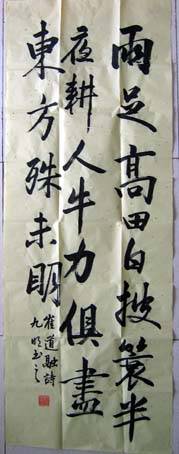 雨足高田白披簑半
夜耕人牛力俱盡
東方殊未明
崔道融詩
九书之